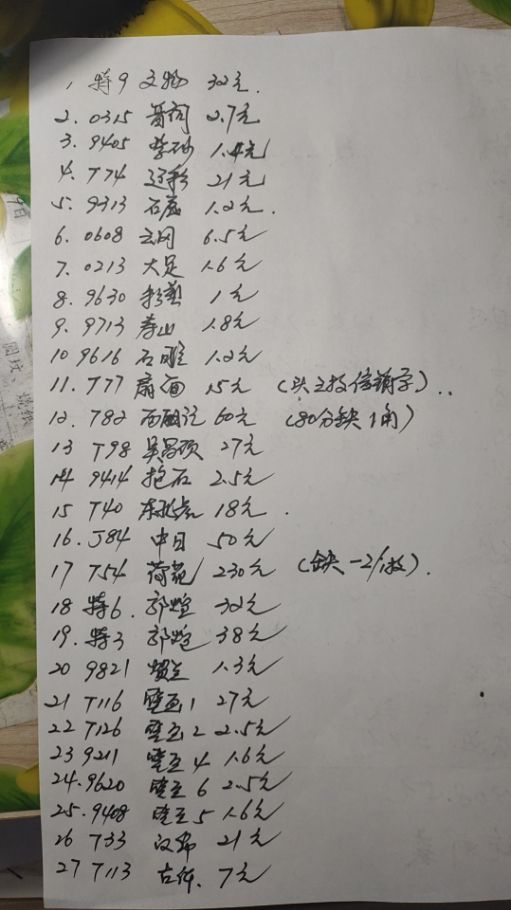 1 特9 文物 32元.
2. 0315 普同 2.7元
3. 9405 紫砂 1.4元
4. T74 辽彩 21元
5. 9313 石窟 1.2元.
6. 0608 云冈 6.5元
7. 0213 大足 1.6元
8. 9630 彩塑 1元
9. 9713 寿山 1.8元
10 9616 石雕 1.2元
11. T77 扇面 15元 (头2枚信销字)..
12. T82 西厢记 60元 (80分缺1角)
13 T98 吴昌硕 27元
14 9414 抱石 2.5元
15 T40 东北虎 18元.
16. J84 中日 50元
17 T54 荷花 230元 (缺一2/1枚).
18 特6. 敦煌 32元
19. 特3 敦煌 38元
20 9821 贺兰 1.3元
21 T116 壁画1 27元
22 T126 壁画2 2.5元
23 9211 壁画4 1.6元
24. 9620 壁画6 2.5元
25. 9408 壁画5 1.6元
26 T33 21元
27 T113 古体. 7元